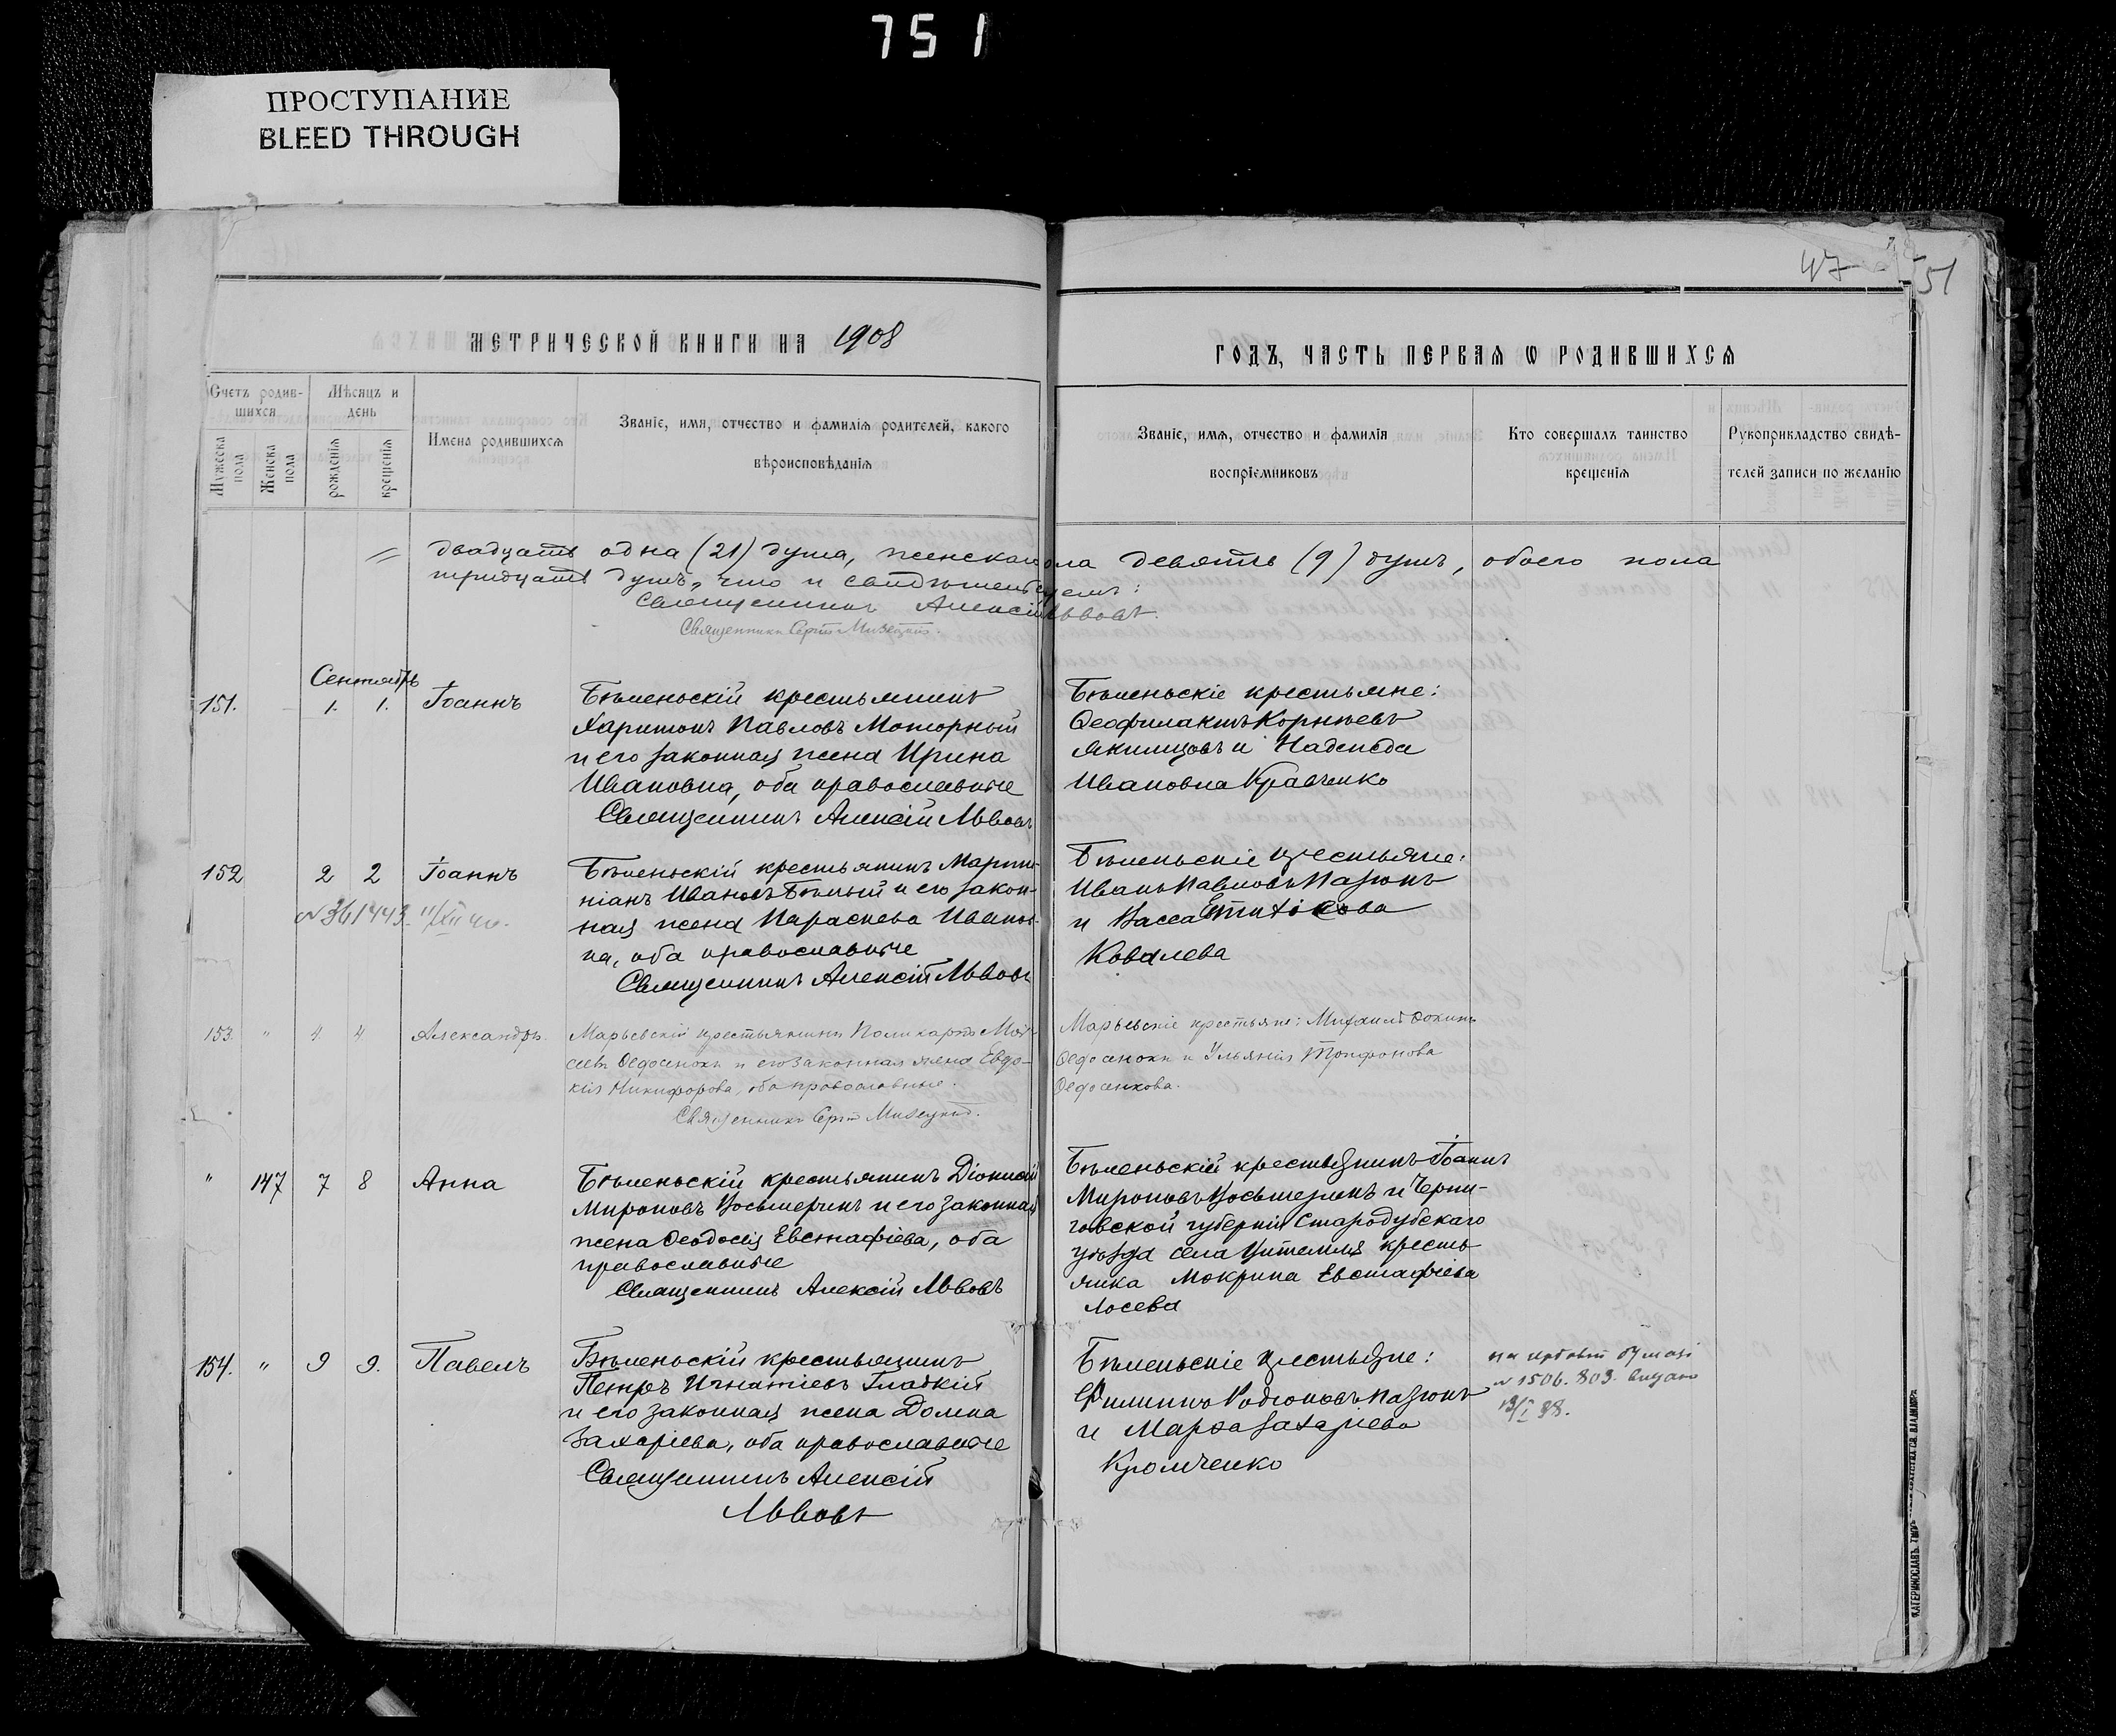 751
ПРОСТУПАНИЕ
BLEED THROUGH
47
51
МЕТРИЧЕСКОЙ КНИГИ НА 1908
ГОДЪ, ЧАСТЬ ПЕРВАЯ Ѡ РОДИВШИХСЯ
Счетъ родив-
шихся
Мужеска пола
Женска пола
Мѣсяцъ и
день
рожденія
крещенія
Имена родившихся
Званіе, имя, отчество и фамилія родителей, какого
вѣроисповѣданія
Званіе, имя, отчество и фамилія
воспріемниковъ
Кто совершалъ таинство
крещенія
Рукоприкладство свидѣ-
телей записи по желанію
двадцать одна (21) душа, женска пола девять (9) душъ, обоего пола
тридцать душъ, что и свидѣтельствуемъ:
Священникъ Алексій Львовъ.
Священникъ Сергій
Сентябрь
151. 1. 1. Іоаннъ
Бѣленьскій крестьянинъ
Харитонъ Павловъ Моторный
и его законная жена Ирина
Ивановна, оба православные
Священникъ Алексій Львовъ
Бѣленьскіе крестьяне:
Ѳеофилактъ Корнѣевъ
Якимцовъ и Надежда
Ивановна Кравченко
152 2 2 Іоаннъ
№ 361443. 11/XII
Бѣленьскій крестьянинъ Марти-
ніанъ Ивановъ Бѣлый и его закон-
ная жена Параскева Иванов-
на, оба православные
Священникъ Алексій Львовъ
Бѣленьскіе крестьяне:
Иванъ Павловъ Пазюкъ
и Васса
Ковалева
153. " 4 4 Александръ.
Марьевскій крестьянинъ Поликарпъ Мои-
сеевъ Ѳедосенокъ и его законная жена Евдо-
кія Никифорова, оба православные.
Священникъ Сергій
Марьевскіе крестьяне: Михаилъ Ѳокинъ
Ѳедосенокъ и Ульянія Трифонова
Ѳедосенкова.
" 147 7 8 Анна
Бѣленьскій крестьянинъ Діонисій
Мироновъ Косьмеринъ и его законная
жена Ѳеодосія Евстафіева, оба
православные
Священникъ Алексій Львовъ
Бѣленьскій крестьянинъ Іоаннъ
Мироновъ и Черни-
говской губерніи Стародубскаго
уѣзда села кресть-
янка Мокрина Евстафіева
Лосева
154. " 9 9. Павелъ
Бѣленьскій крестьянинъ
Петръ Игнатіевъ Гладкій
и его законная жена Домна
Захаріева, оба православные
Священникъ Алексій
Львовъ
Бѣленьскіе крестьяне:
Филиппъ Родіоновъ Пазюкъ
и Марѳа Захаріева
Кромченко
на гербовій бумазі
№ 1506.803. видано
13/I 38.